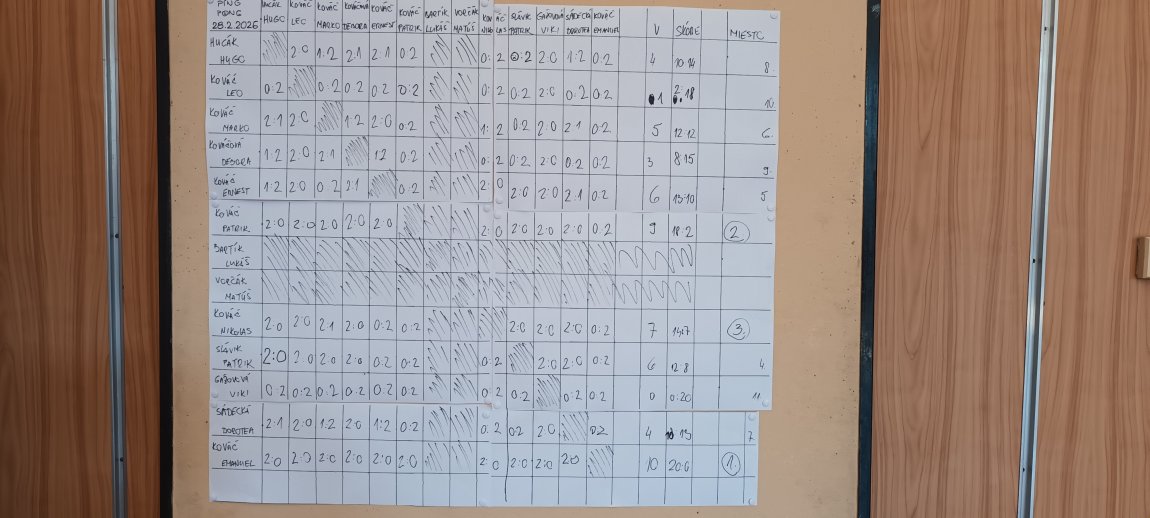 PING PONG 28.2.2026 HUČÁK HUGO KOVÁČ LEO KOVÁČ MARKO KOVÁČOVÁ DEBORA KOVÁČ ERNEST KOVÁČ PATRIK BARTÍK LUKÁŠ VORČÁK MATÚŠ SLÁVIK PATRIK SÁDECKÁ DOROTEA KOVÁČ EMANUEL V SKÓRE MIESTO
HUČÁK HUGO 2:0 1:2 2:1 2:1 0:2 0:2 0:2 2:0 1:2 0:2 4 10:14 8.
KOVÁČ LEO 0:2 0:2 0:2 0:2 0:2 0:2 0:2 2:0 0:2 0:2 1 2:18 10.
KOVÁČ MARKO 2:1 2:0 1:2 2:0 0:2 1:2 0:2 2:0 2:1 0:2 5 12:12 6.
KOVÁČOVÁ DEBORA 1:2 2:0 2:1 1:2 0:2 0:2 0:2 2:0 0:2 0:2 3 8:15 9.
KOVÁČ ERNEST 1:2 2:0 0:2 2:1 0:2 2:0 2:0 2:0 2:1 0:2 6 13:10 5
KOVÁČ PATRIK 2:0 2:0 2:0 2:0 2:0 2:0 2:0 2:0 2:0 0:2 9 18:2 2.
BARTÍK LUKÁŠ
VORČÁK MATÚŠ
KOVÁČ NIKOLAS 2:0 2:0 2:1 2:0 0:2 0:2 2:0 2:0 2:0 0:2 7 14:7 3.
SLÁVIK PATRIK 2:0 2:0 2:0 2:0 0:2 0:2 0:2 2:0 2:0 0:2 6 12:8 4.
VIKI 0:2 0:2 0:2 0:2 0:2 0:2 0:2 0:2 0:2 0:2 0 0:20 11.
SÁDECKÁ DOROTEA 2:1 2:0 1:2 2:0 1:2 0:2 0:2 0:2 2:0 0:2 4 13 7.
KOVÁČ EMANUEL 2:0 2:0 2:0 2:0 2:0 2:0 2:0 2:0 2:0 2:0 10 20:0 1.